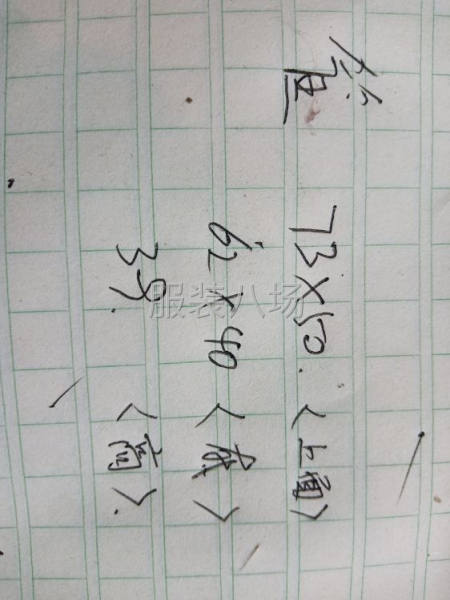 73×50.〈上面〉
62×40〈底〉
39.〈高〉.
服装八场